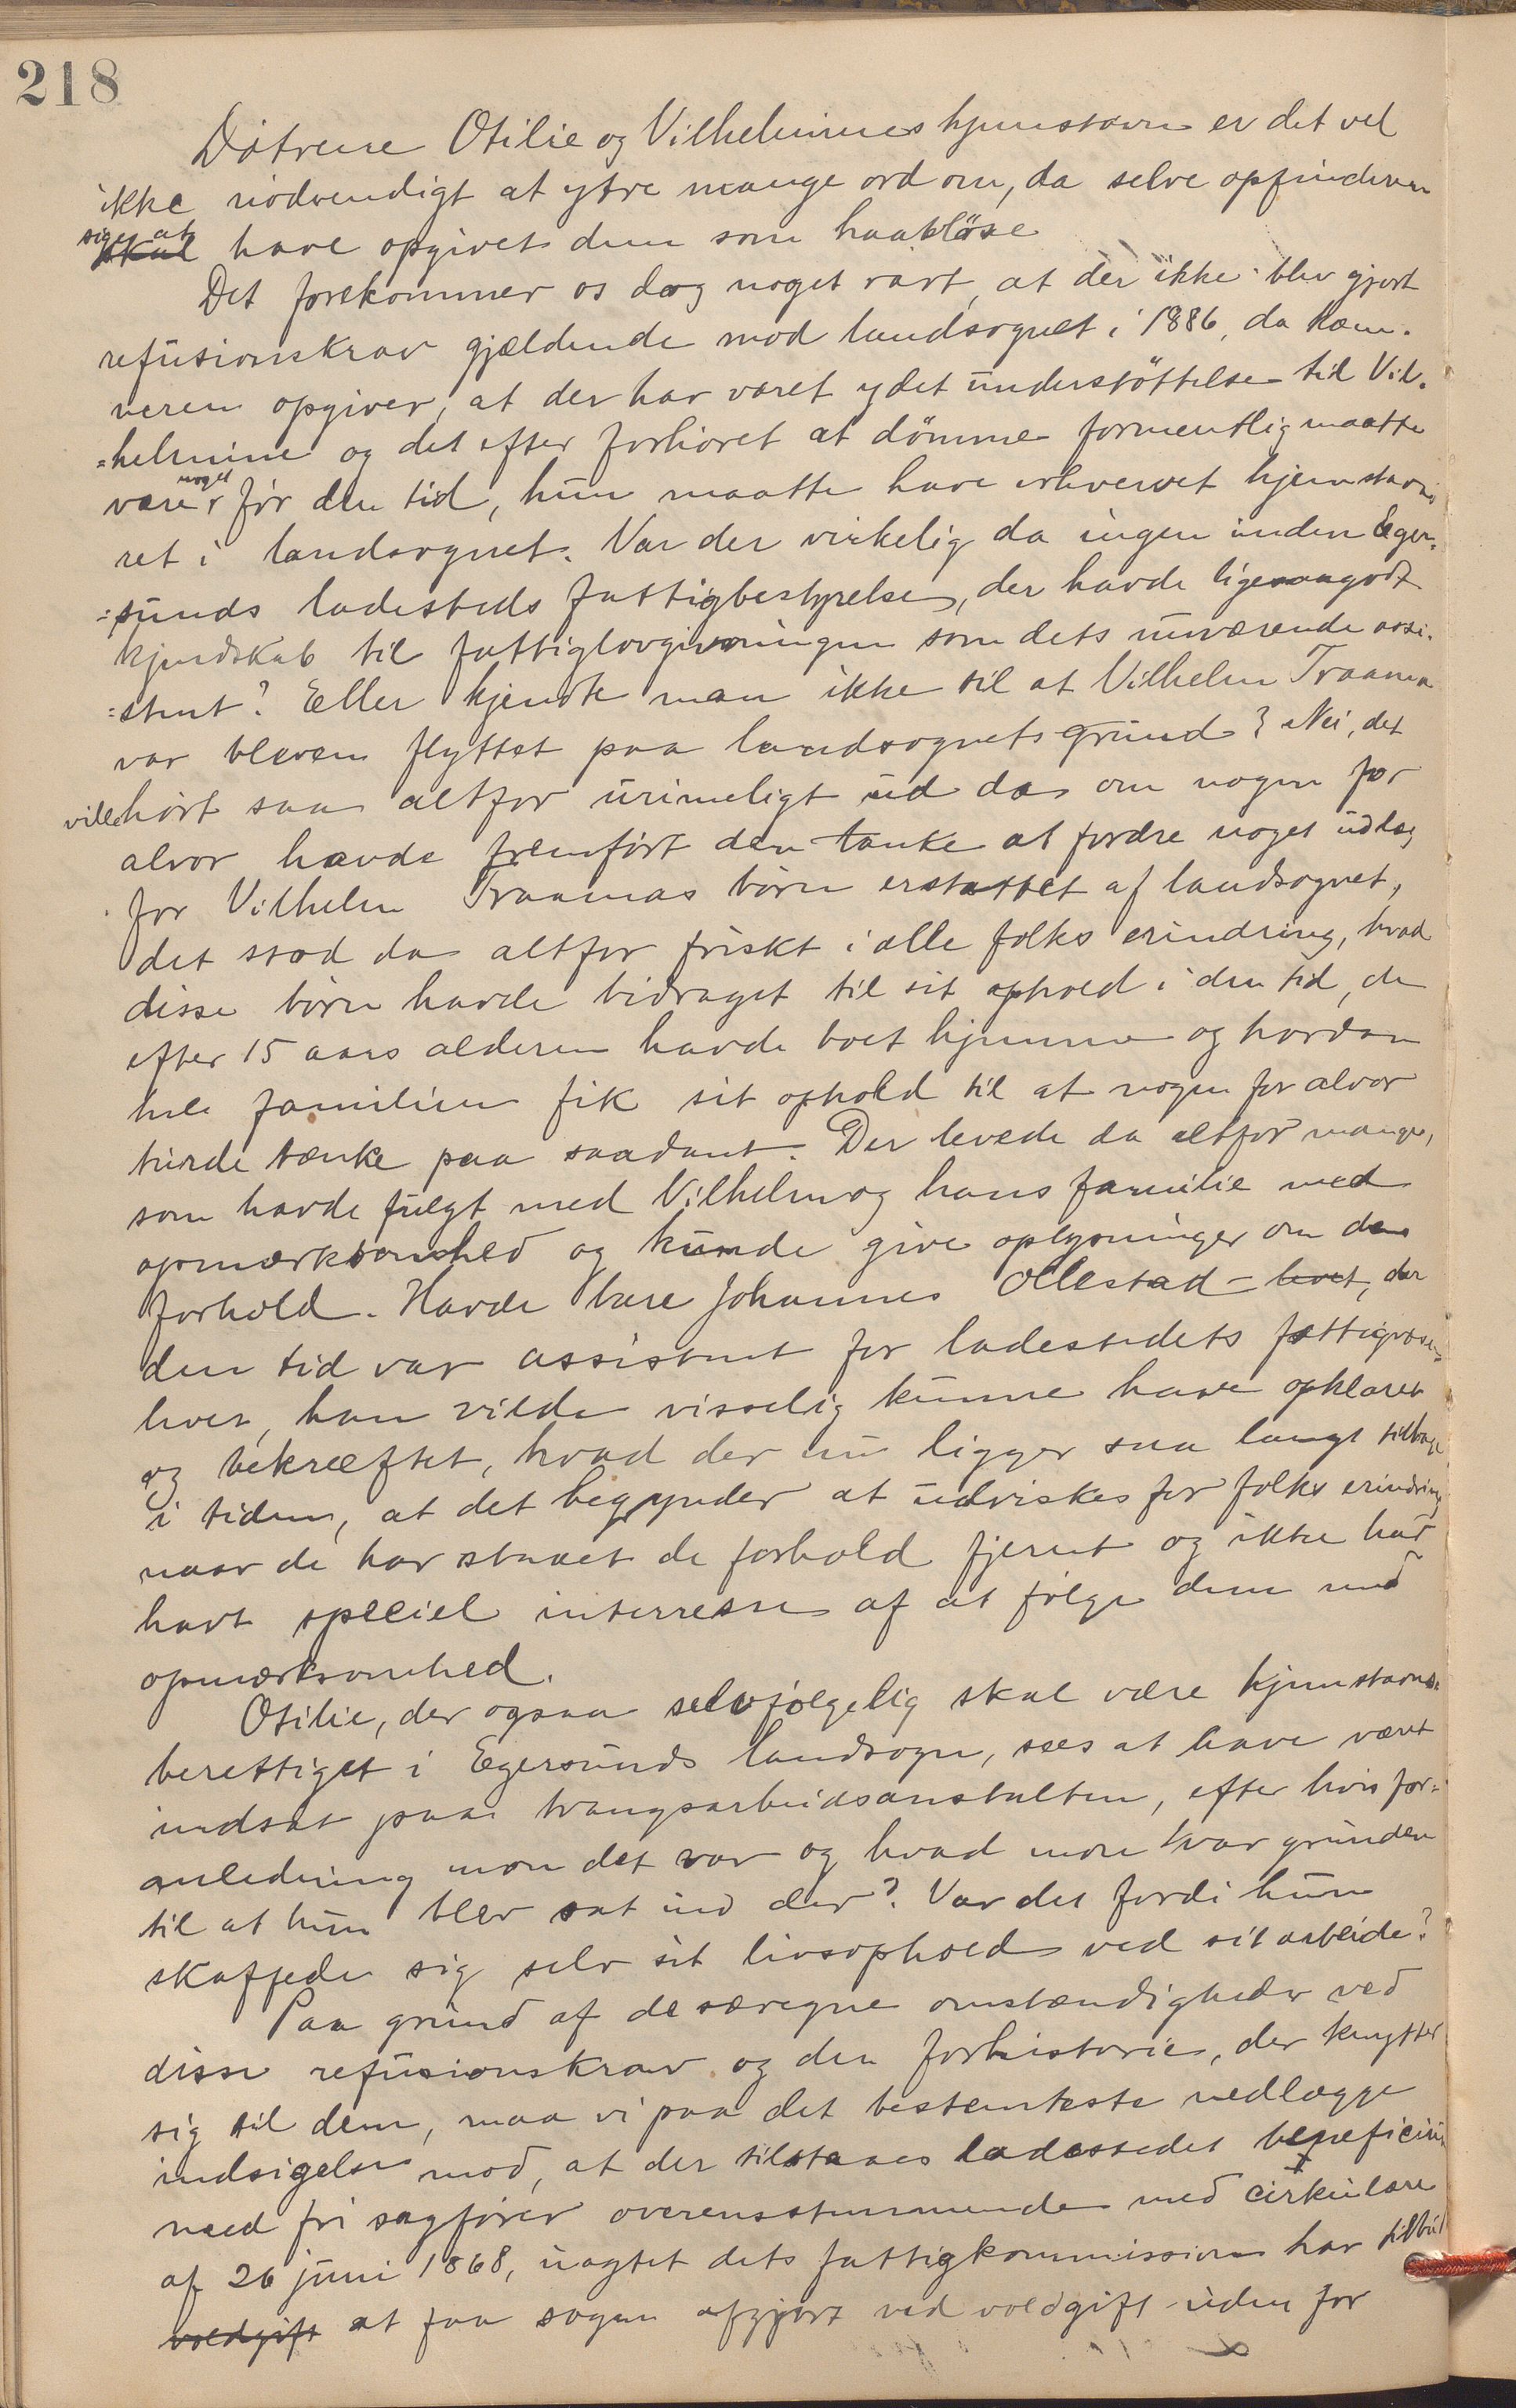 218
Døtrene Otilie og Vilhelmines hjemstavn er det vel
ikke nødvendigt at ytre mange ord om, da selve opfinderen
siges at
skal have opgivet dem som haabløse
Det forekommer os dog noget rart, at der ikke blev gjort
refusionskrav gjældende mod landsognet i 1886, da kæm-
neren opgiver, at der har været ydet understøttelse til Vil-
=helmine og det efter forhøret at dømme formentlig maatte
være noget før den tid, hun maatte have erhvervet hjemstavns
ret i landsognet. Var der virkelig da ingen inden Eger-
=sunds ladesteds fattigbestyrelse, der havde ligesaagodt
kjendskab til fattiglovgivningen som dets nuværende assi-
=stent? Eller kjendte man ikke til at Vilhelm Traama
var bleven flyttet paa landsognets grund? Nei, det
ville hørt saa altfor urimeligt ud da om nogen for
alvor havde fremført den tanke at fordre noget udlæg
for Vilhelm Traamas børn erstattet af landsognet,
det stod da altfor friskt i alle folks erindring, hvad
disse børn havde bidraget til sit ophold i den tid, de
efter 15 aars alderen havde boet hjemme og hvordan
hele familien fik sit ophold til at nogen for alvor
turde tænke paa saadant. Der levede da altfor mange,
som havde fulgt med Vilhelm og hans familie med
opmærksomhed og kunde give oplysninger om dens
forhold. Havde bare Johannes Ollestad - levet, der
den tid var assistent for ladestedets fattigvæsen
levet, han vilde visselig kunne have opklaret
og bekræftet, hvad der nu ligger saa langt tilbage
i tiden, at det begynder at udviskes for folks erindring
naar de har staaet de forhold fjernt og ikke har
havt speciel interesse af at følge dem med
opmærksomhed.
Otilie, der ogsaa selvfølgelig skal være hjemstavns-
berettiget i Egersunds landsogn, sees at have været
indsat paa tvangsarbeidsanstalten, efter hvis for-
anledning mon det var og hvad mon var grunden
til at hun blev sat ind der? Var det fordi hun
skaffede sig selv sit livsophold ved sit arbeide?
Paa grund af de særegne omstændigheder ved
disse refusionskrav og den forhistorie, der knytter
sig til dem, maa vi paa det bestemteste nedlægge
indsigelse mod, at der tilstaaes ladestedet beneficium
med fri sagfører overensstemmende med cirkulære
af 26 juni 1868, uagtet dets fattigkommission har tilbudt
voldgift at faa sagen afgjort ved voldgift uden for